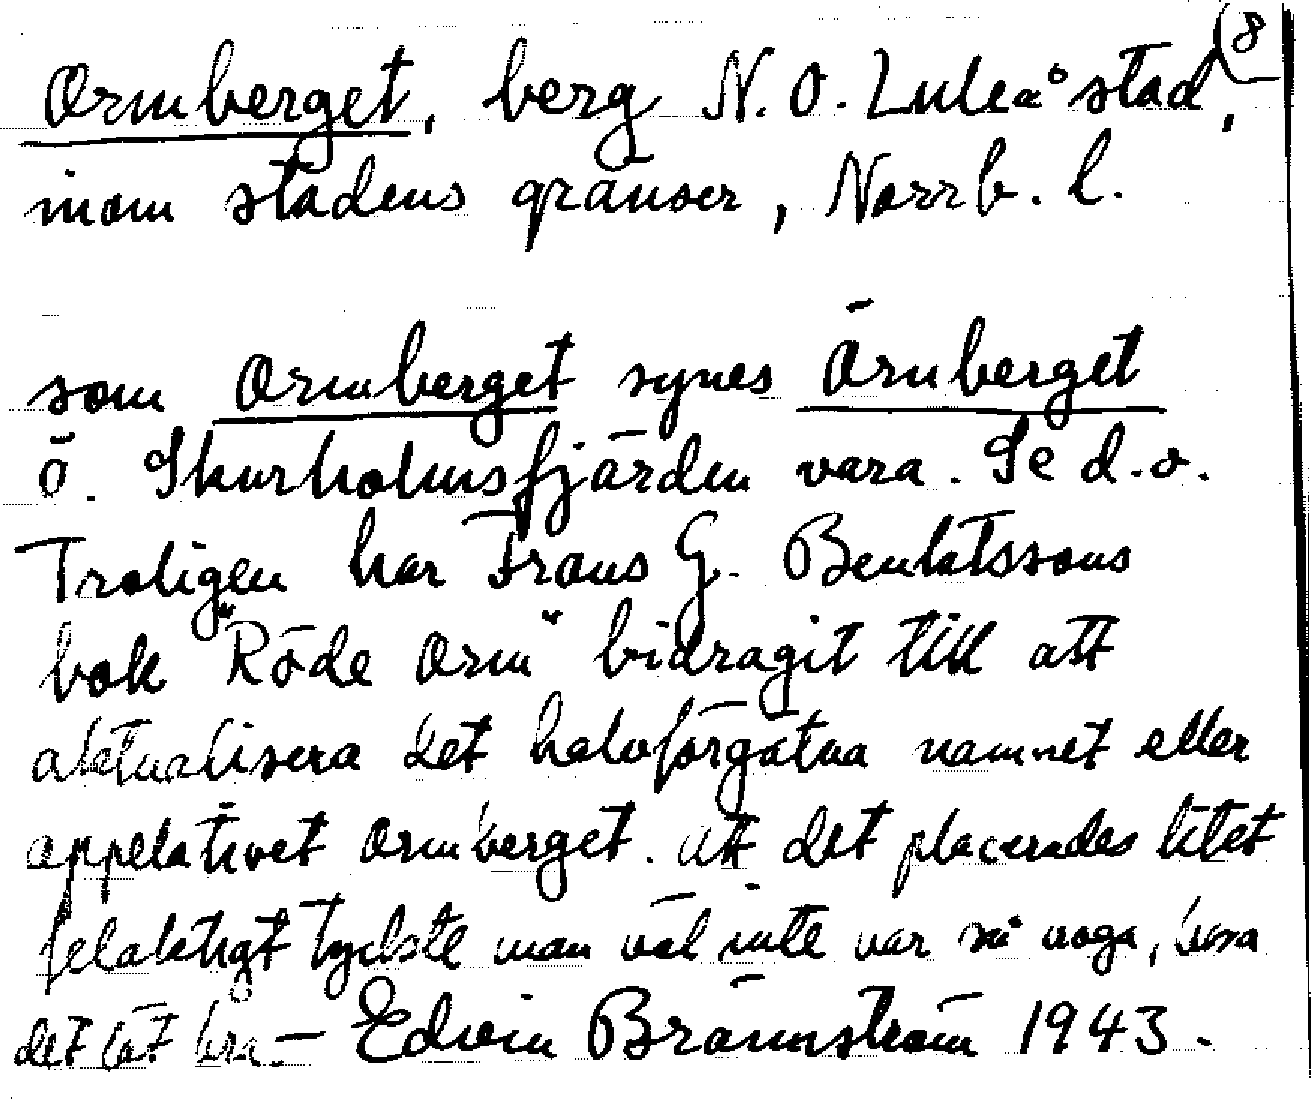 (8
Ormberget, berg N. O. Luleå stad,
inom stadens gränser, Norrb. l.
som Ormberget synes Örnberget
ö. Skurholmsfjärden vara. Se d. o.
Troligen har Frans G. Bentatssons
bok "Röde Orm" bidragit till att
aktualisera det halvförgätna namnet eller
appelativet ormberget. Att det placerades litet
felaktigt tyckte man väl inte var så noga, bara
det låt bra. – Edvin Brännström 1943.